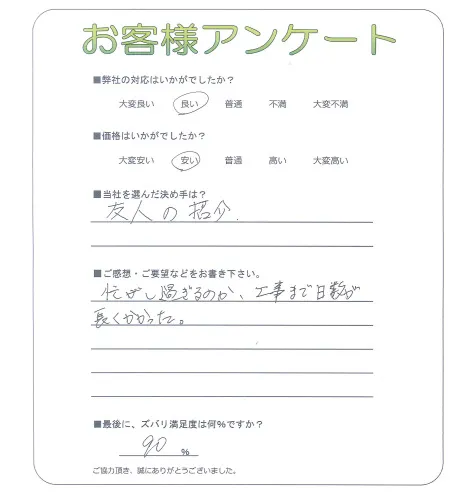 お客様アンケート
■弊社の対応はいかがでしたか？
大変良い 良い 普通 不満 大変不満
■価格はいかがでしたか？
大変安い 安い 普通 高い 大変高い
■当社を選んだ決め手は？
友人の招介
■ご感想・ご要望などをお書き下さい。
忙がし過ぎるのか、工事まで日数が
長くかかった。
■最後に、ズバリ満足度は何％ですか？
90 %
ご協力頂き、誠にありがとうございました。